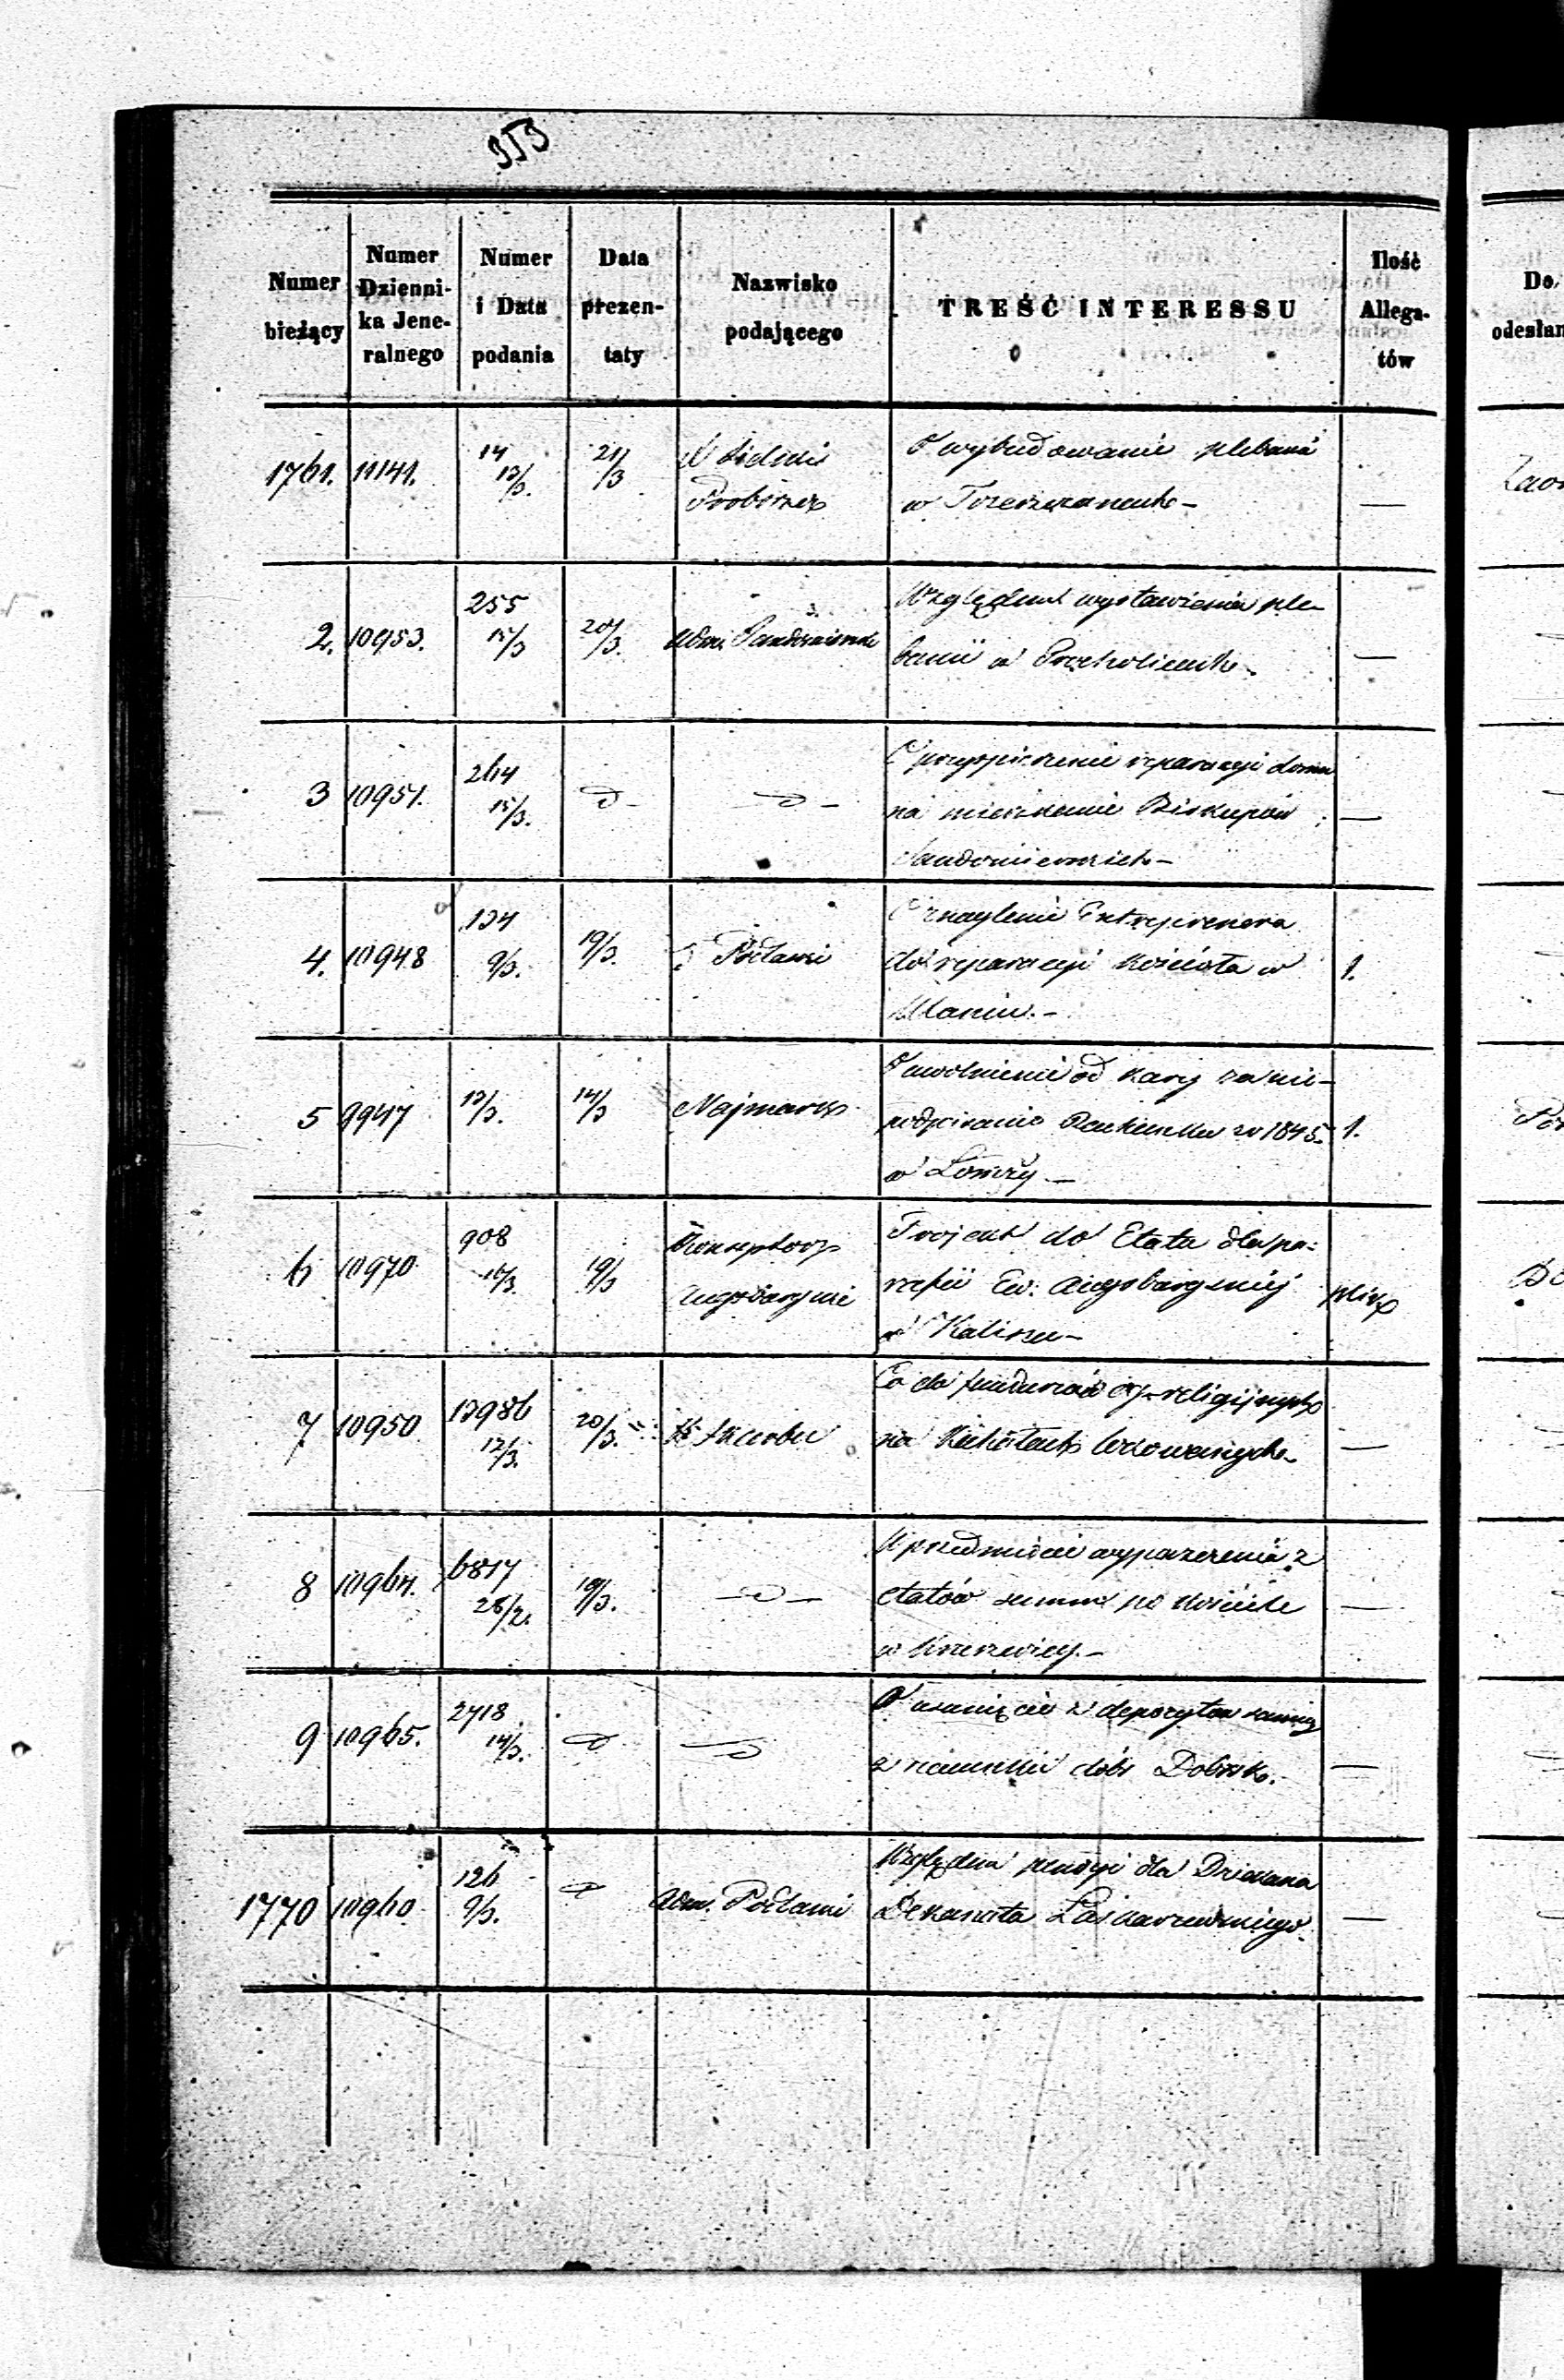 353
Numer bieżący | Numer Dzienni-ka Jene-ralnego | Numer i Data podania | Data prezen-taty | Nazwisko podającego | TREŚĆ INTERESSU | Ilość Allega-tów | Do
odesłan
1761. 11141. 14 13/3. 21/3
Proboszcz
O wybudowanie plebanii
w —
2. 10953. 255 15/3 20/3. Adm. Sandomierski
Względem wystawienia ple-
banii w —
3 10951. 264 15/3. D- —D—
O przyspieszenie reparacyi domu
na mieszkanie Biskupów —
Sandomierskich—
4. 10948 134 9/3. 19/3. Podlaski
O naglenie Entreprenera
do reparacyi Kościoła w 1.
Ulaniu.—
5 9947 13/3. 14/3 Najmark
O uwolnienie od kary za nie-
podpisanie Rachunku w 1845. 1.
w Łomży.—
6 10970 908 16/3. 19/3 Konsystorz
Augsburgski
Projekt do Etatu dla pa-
rafii Ew. Augsburgskiej
w Kaliszu— plik
7 10950 13986 12/3. 20/3. K Skarbu
Co do funduszów religijnych
na lokowanych. —
8 10964. 6817 28/2. 19/3. —D—
W przedmiocie z
etatów summ po kościele —
w
9 10965. 2718 14/3. D D
O usunięcie z depozytu summy
z szacunku dóbr —
1770 10960 126 9/3. D Adm. Podlaski
Względem pensyi dla Dziekana
Dekanata Łaskarzewskiego. —